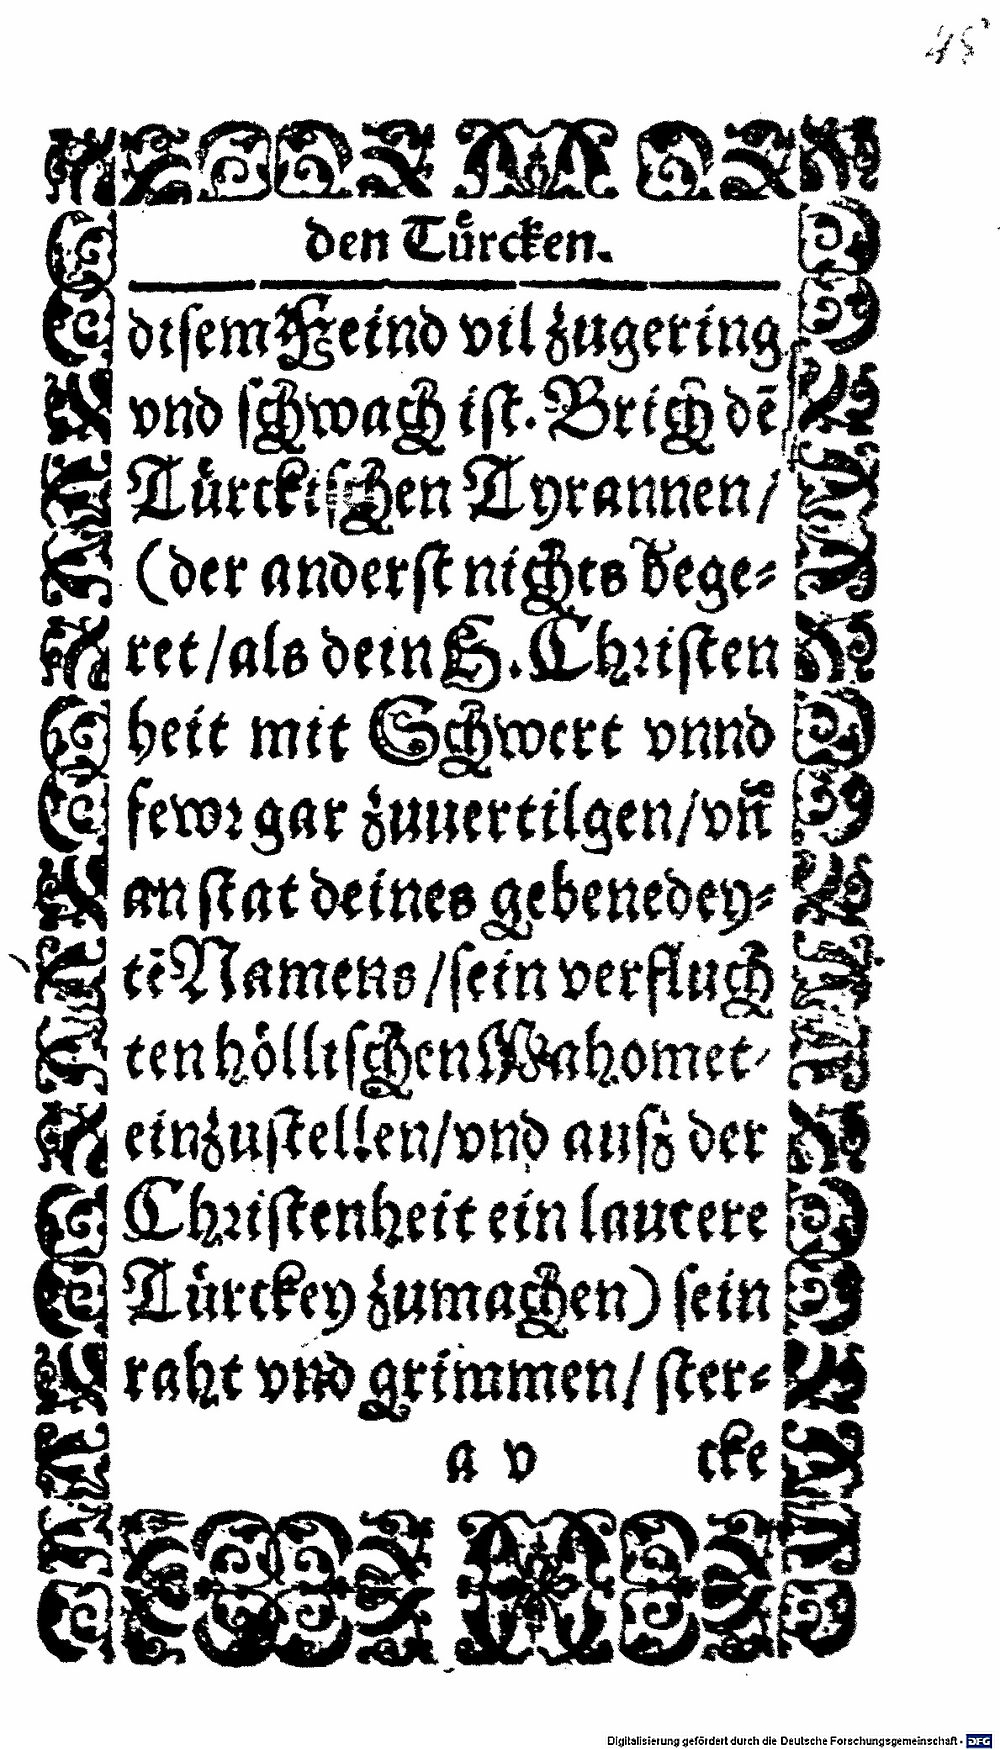 45
den Tuͤrcken.
disem Feind vil zugering
vnd schwach ist. Brich dē
Tuͤrckischen Tyrannen /
(der anderst nichts bege⸗
ret / als dein H. Christen
heit mit Schwert vnnd
fewr gar zuuertilgen / vn̄
an stat deines gebenedey⸗
tē Namens / sein verfluch
ten hoͤllischen Mahomet
einzustellen / vnd ausz der
Christenheit ein lautere
Tuͤrckey zumachen) sein
raht vnd grimmen / ster⸗
a v cke
Digitalisierung gefördert durch die Deutsche Forschungsgemeinschaft - DFG